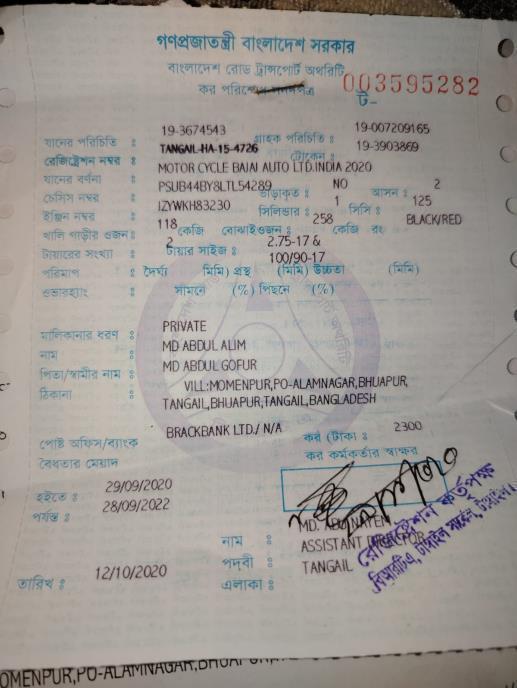 গণপ্রজাতন্ত্রী বাংলাদেশ সরকার
বাংলাদেশ রোড ট্রান্সপোর্ট অথরিটি
কর পরিশোধ সনদপত্র
ট- 003595282
যানের পরিচিতি : 19-3674543 গ্রাহক পরিচিতি : 19-007209165
রেজিষ্ট্রেশন নম্বর : TANGAIL-HA-15-4726 টোকেন : 19-3903869
যানের বর্ণনা : MOTOR CYCLE BAJAJ AUTO LTD.INDIA 2020
চেসিস নম্বর : PSUB44BY8LTL54289 ভাড়াকৃত : NO আসন : 2
ইঞ্জিন নম্বর : JZYWKH83230 সিলিন্ডার : 1 সিসি : 125
খালি গাড়ীর ওজন : 118 কেজি বোঝাইওজন : 258 কেজি রং BLACK/RED
টায়ারের সংখ্যা : 2 টায়ার সাইজ : 2.75-17 &
100/90-17
পরিমাপ : দৈর্ঘ্য মিমি) প্রস্থ (মিমি) উচ্চতা (মিমি)
ওভারহ্যাং : সামনে (%) পিছনে (%)
মালিকানার ধরণ : PRIVATE
নাম : MD ABDUL ALIM
পিতা/স্বামীর নাম : MD ABDUL GOFUR
ঠিকানা : VILL:MOMENPUR,PO-ALAMNAGAR,BHUAPUR,
TANGAIL,BHUAPUR,TANGAIL,BANGLADESH
পোষ্ট অফিস/ব্যাংক BRACKBANK LTD./ N/A কর (টাকা : 2300
বৈধতার মেয়াদ কর কর্মকর্তার স্বাক্ষর
হইতে : 29/09/2020
পর্যন্ত : 28/09/2022
MD. ABU NAYEM
নাম : ASSISTANT DIRECTOR
পদবী :
তারিখ : 12/10/2020 এলাকা : TANGAIL
রেজিষ্ট্রেশন কর্তৃপক্ষ
বিআরটিএ, টাঙ্গাইল সার্কেল, টাঙ্গাইল।
OMENPUR,PO-ALAMNAGAR,BHUAPUR,